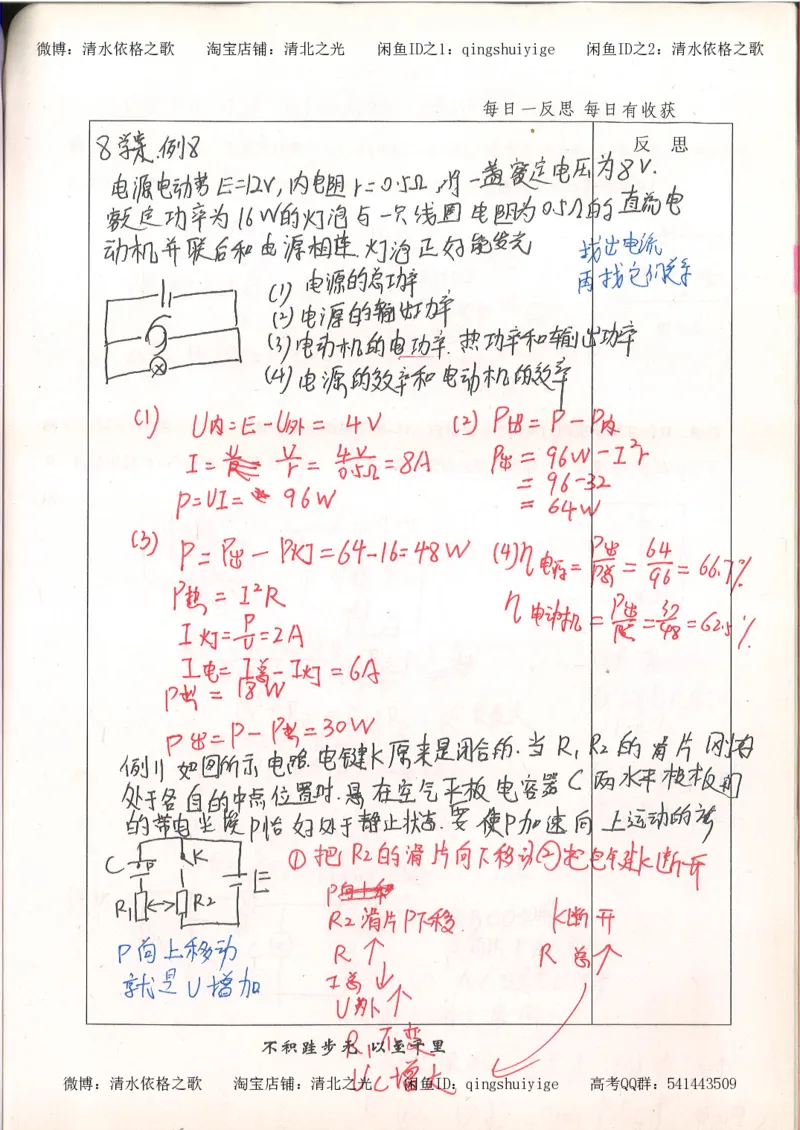 微博：清水依格之歌 淘宝店铺：清北之光 闲鱼ID之1：qingshuiyige 闲鱼ID之2：清水依格之歌
每日一反思 每日有收获
反 思
8学案.例8
电源电动势E=12V,内电阻r=0.5Ω,将一盏额定电压为8V.
额定功率为16W的灯泡与一只线圈电阻为0.5Ω的直流电
动机并联后和电源相连.灯泡正好能发光
找出电流
再找它们关系
(1) 电源的总功率
(2)电源的输出功率
(3)电动机的电功率.热功率和输出功率
(4)电源的效率和电动机的效率
(1) U内=E-U外= 4V
I= U/r = 4V/0.5Ω =8A
P=UI= 96W
(2) P出= P-P内
P出 = 96W-I²r
= 96-32
= 64W
(3) P=P出-P灯=64-16=48W
P热 = I²R
I灯=P/U=2A
I电=I总-I灯=6A
P热 = 18W
P出=P-P热=30W
(4)η电源= P出/P总 = 64/96 = 66.7%
η电动机 = P出/P总 = 32/48 = 62.5%
例11 如图所示电路.电键K原来是闭合的.当R₁,R₂的滑片刚好
处于各自的中点位置时.悬在空气平板电容器C两水平极板间
的带电尘埃P恰好处于静止状态.要使P加速向上运动的方
C P K E
R₁ R2
①把R2的滑片向下移动②把电键K断开
R2滑片P下移 K断开
R↑ R总↑
I总↓
U外↑
R₁不变
Uc增大
P向上移动
就是U增加
不积跬步无以至千里
微博：清水依格之歌 淘宝店铺：清北之光 闲鱼ID：qingshuiyige 高考QQ群：541443509